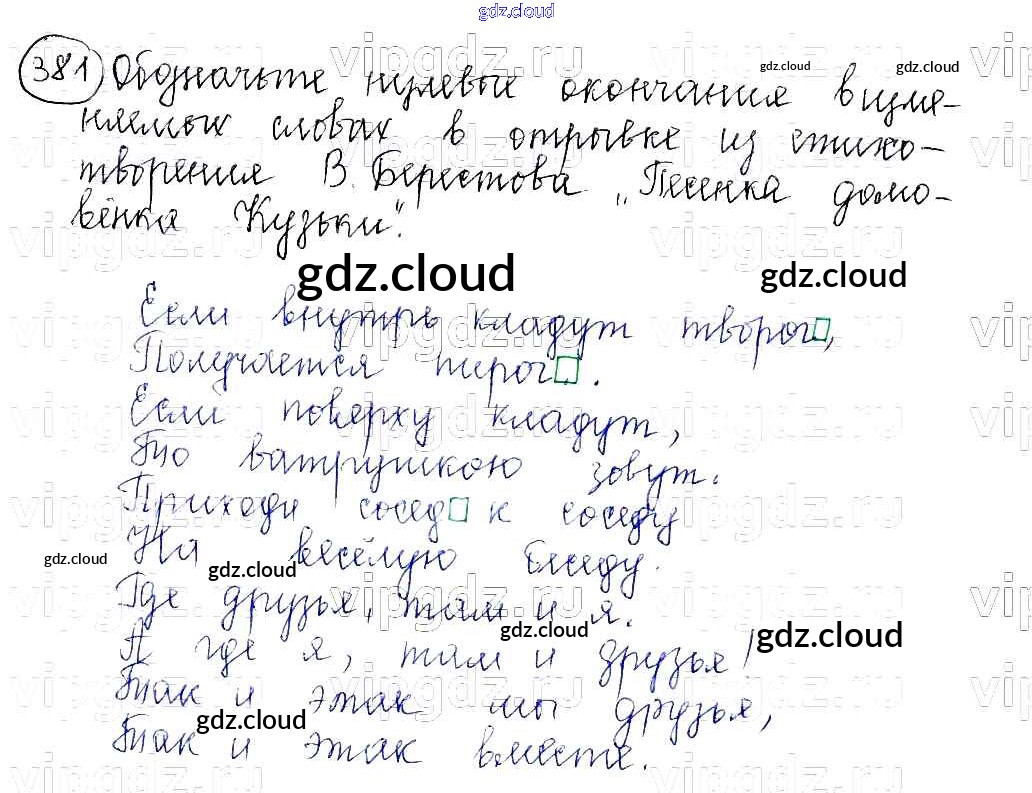 gdz.cloud
381 Обозначьте нулевые окончания в изме-
няемых словах в отрывке из стихо-
творения В. Берестова „Песенка домо-
вёнка Кузьки".
gdz.cloud gdz.cloud
gdz.cloud gdz.cloud
Если внутрь кладут творог,
Получается пирог.
Если поверху кладут,
То ватрушкою зовут.
Приходи сосед к соседу
На весёлую беседу.
gdz.cloud gdz.cloud
Где друзья, там и я.
А где я, там и друзья!
gdz.cloud gdz.cloud
Так и этак мы друзья,
gdz.cloud
Так и этак вместе.
vipgdz.ru